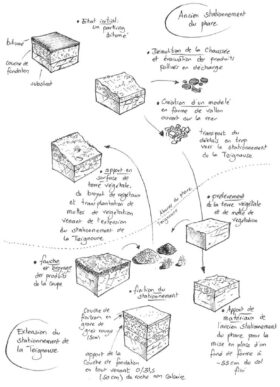 Ancien stationnement
du phare
• Etat initial:
un parking
bitumé
bitume
couche de
fondation
substrat
• Démolition de la chaussée
et évacuation des produits
pollués en décharge
• Création d'un modelé
en forme de vallon
ouvert sur la mer
transport du
déblais en trop
vers le stationnement
de la Teignouse
• apport en
surface de
terre végétale,
du broyat de végétaux
et transplantation de
mottes de végétation
venant de l'extension
du stationnement de
la Teignouse
• prélèvement
de la terre végétale
et de mottes de
végétation
• fauche
et broyage
des produits
de la coupe
• finition du
stationnement
Couche de
finition en
grave de
grès rouge
(15cm)
apport de la
couche de fondation
en tout venant 0/31,5
(50 cm) de roche non calcaire
• Apport de
matériaux de
l'ancien stationnement
du phare pour la
mise en place d'un
fond de forme à
-35cm du sol
fini
Extension du
stationnement de
la Teignouse